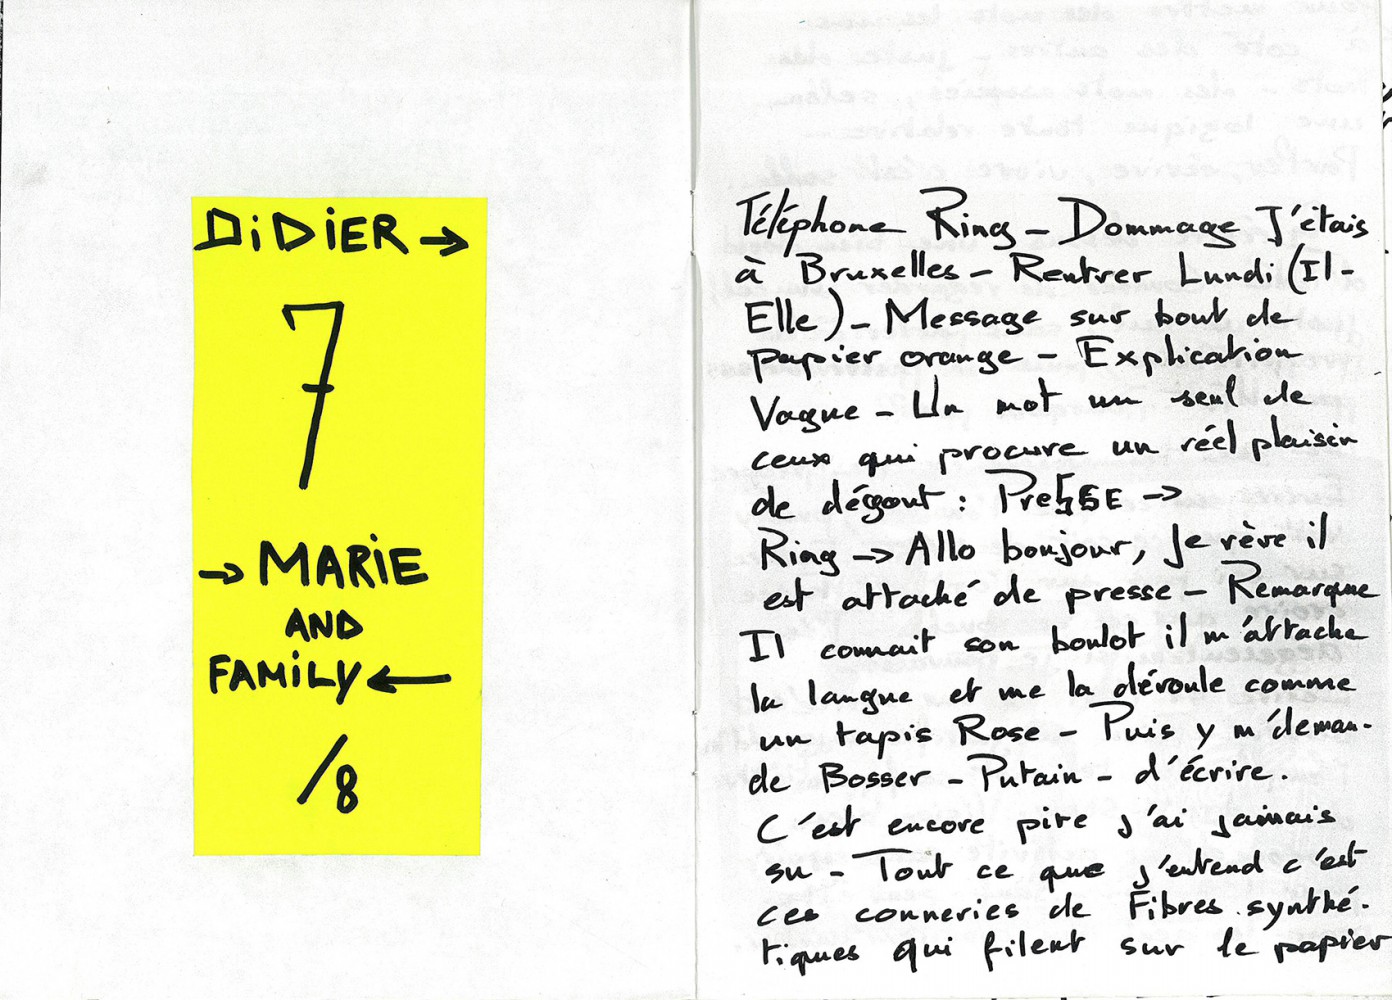 DiDiER →
7
→ MARiE
AND
FAMiLY ←
/8
Téléphone Ring – Dommage J'étais
à Bruxelles – Rentrer Lundi (Il-
Elle) – Message sur bout de
papier orange – Explication
Vague – Un mot un seul de
ceux qui procure un réel plaisir
de dégout : PreSSE →
Ring → Allo bonjour, Je rève il
est attaché de presse – Remarque
Il connait son boulot il m'attache
la langue et me la déroule comme
un tapis Rose – Puis y m'deman-
de Bosser – Putain – d'écrire.
C'est encore pire j'ai jamais
su – Tout ce que j'entend c'est
ces conneries de Fibres synthé-
tiques qui filent sur le papier